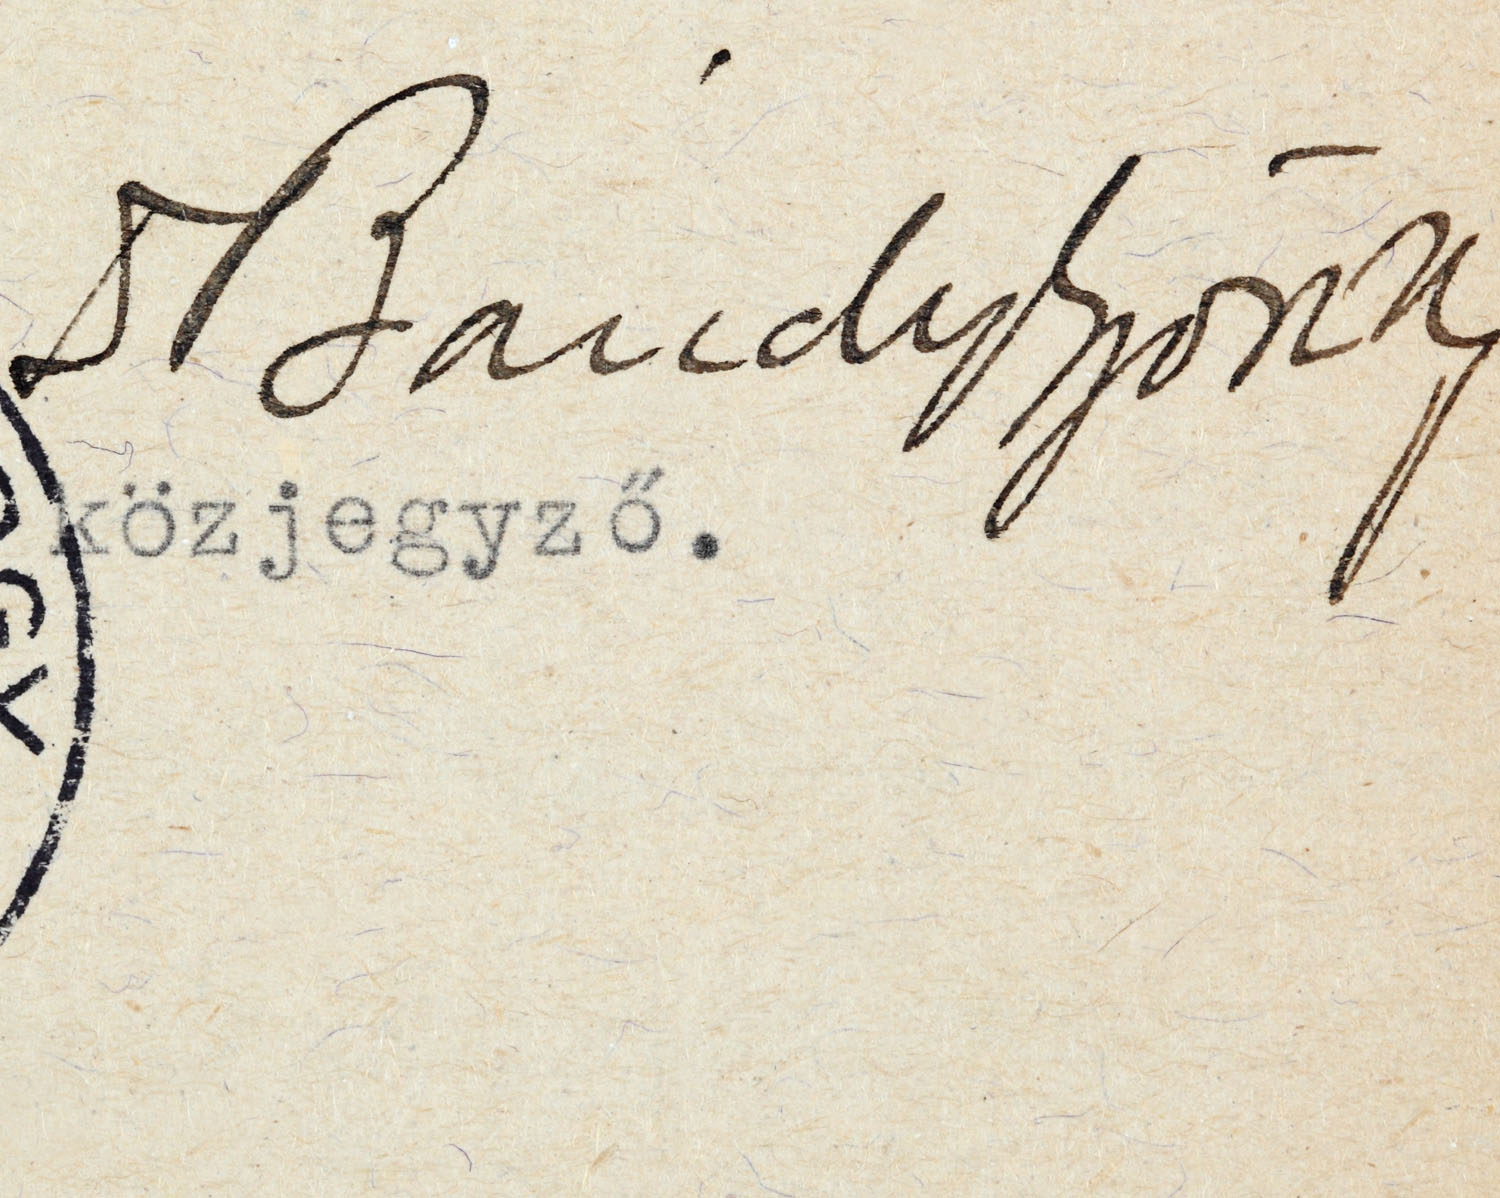 Dr Bándy György
közjegyző.
GY